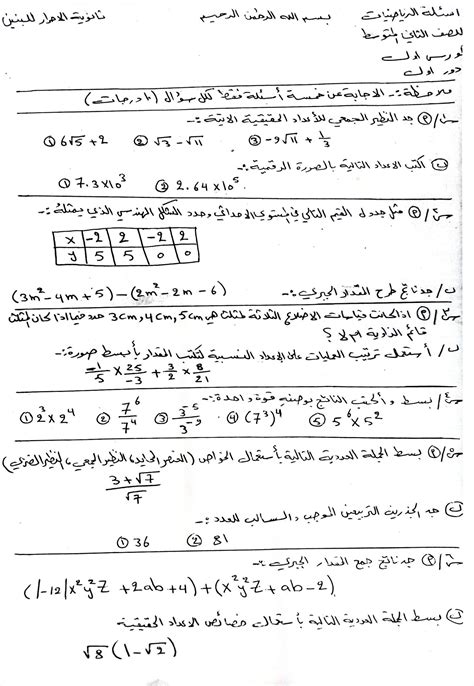 اسئلة الرياضيات بسم الله الرحمن الرحيم ثانوية الاحرار للبنين
للصف الثاني المتوسط
كورس اول
دور اول
ملاحظة :- الاجابة عن خمسة أسئلة فقط لكل سؤال (١٠ درجات)
س١/ P) جد النظير الجمعي للأعداد الحقيقية الاتية :-
① 6√5 + 2 ② √3 - √11 ③ -9√11 + 1/3
ب) اكتب الاعداد التالية بالصورة الرقمية :-
① 7.3 x 10^3 ② 2.64 x 10^5
س٢/ P) مثل جدول القيم التالي في المستوي الاحداثي وحدد الشكل الهندسي الذي يمثله :-
x -2 2 -2 2
y 5 5 0 0
ب/ جد ناتج طرح المقدار الجبري :- (3m² - 4m + 5) - (2m² - 2m - 6)
س٣/ P) اذا كانت قياسات الاضلاع الثلاثة لمثلث هي 3cm, 4cm, 5cm حدد فيما اذا كان المثلث
قائم الزاوية ام لا ؟
ب/ أستعمل ترتيب العمليات على الاعداد النسبية لتكتب المقدار بأبسط صورة :-
-1/5 x 25/-3 + 3/2 x 8/21
س٤/ بسط و أكتب الناتج بوصفه قوة واحدة :-
① 2^3 x 2^4 ② 7^6/7^4 ③ 3^-5/3^-9 ④ (7^3)^4 ⑤ 5^6 x 5^2
س٥/ P) بسط الجملة العددية التالية بأستعمال الخواص (العنصر المحايد، النظير الجمعي، النظير الضربي)
3 + √7 / √7
ب) جد الجذرين التربيعين الموجب والسالب للعدد :-
① 36 ② 81
س٦/ P) جد ناتج جمع المقدار الجبري :-
(|-12|x²y²Z + 2ab + 4) + (x²y²Z + ab - 2)
ب) بسط الجملة العددية التالية بأستعمال خصائص الاعداد الحقيقية
√8 (1 - √2)